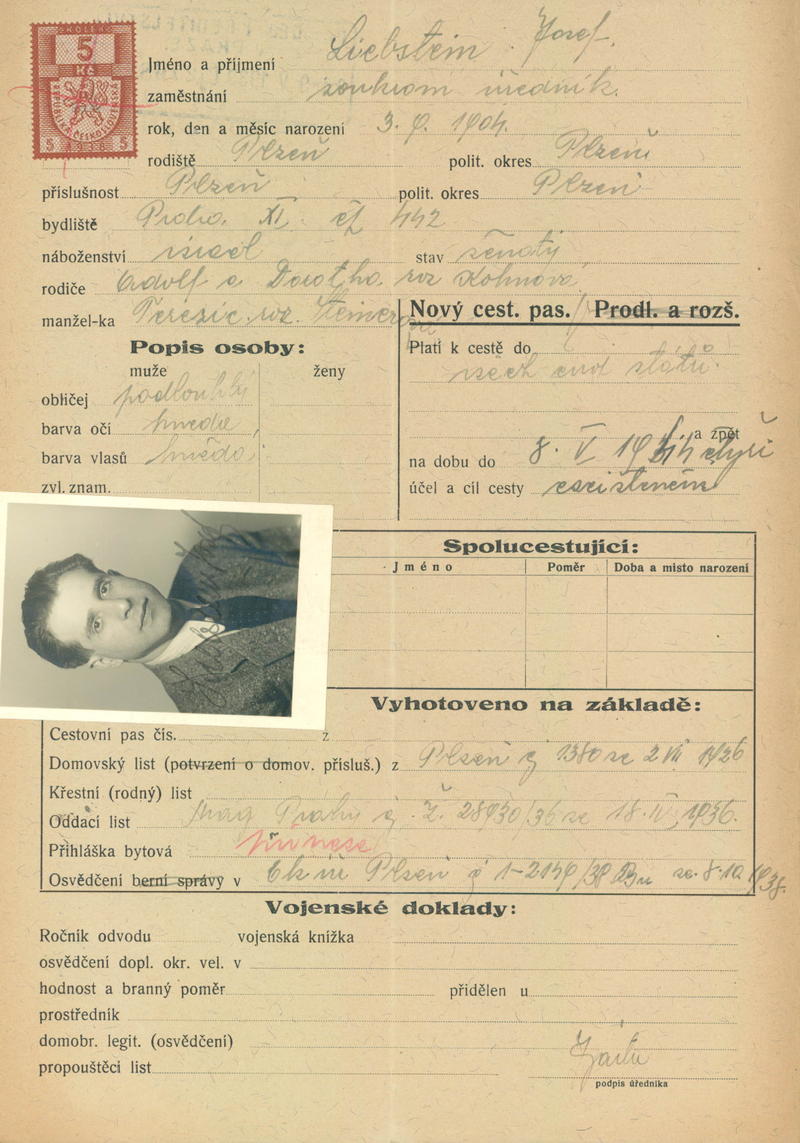 KOLEK
5
Kč
REPUBLIKA ČESKOSLOVENSKÁ
5 1938 5
Jméno a příjmení Liebstein Josef.
zaměstnání soukrom úředník.
rok, den a měsíc narození 3. 9. 1904.
rodiště Plzeň polit. okres Plzeň
příslušnost Plzeň polit. okres Plzeň
bydliště Praha XI. čp 442
náboženství israel stav ženatý
rodiče Adolf a Dorotha roz Kohnová
manžel-ka Terezie roz. Steinerová
Nový cest. pas. / Prodl. a rozš.
Popis osoby:
muže ženy
obličej podlouhlý
barva očí hnědé
barva vlasů hnědé
zvl. znam.
Platí k cestě do
všech evr států.
a zpět
na dobu do 8. V 19 čtyři
účel a cíl cesty
Spolucestující:
Jméno Poměr Doba a místo narození
Vyhotoveno na základě:
Cestovní pas čís. z
Domovský list (potvrzení o domov. přísluš.) z Plzeň 1380 ze 2 VII 1926
Křestní (rodný) list
Oddací list Mag Prahy č. Ž. 28930/36 ze 18. IV. 1936.
Přihláška bytová
Osvědčení berní správy v Plzeň ze 8.10 1938.
Vojenské doklady:
Ročník odvodu vojenská knížka
osvědčení dopl. okr. vel. v
hodnost a branný poměr přidělen u
prostředník
domobr. legit. (osvědčení)
propouštěcí list
podpis úředníka